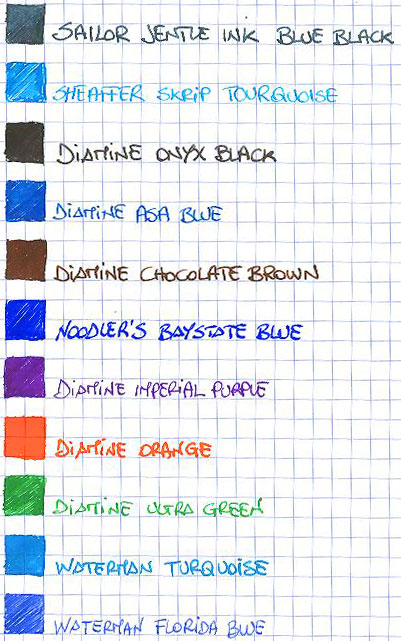 SAILOR JENTLE INK BLUE BLACK
SHEAFFER SKRIP TOURQUOISE
DIAMINE ONYX BLACK
DIAMINE ASA BLUE
DIAMINE CHOCOLATE BROWN
NOODLER'S BAYSTATE BLUE
DIAMINE IMPERIAL PURPLE
DIAMINE ORANGE
DIAMINE ULTRA GREEN
WATERMAN TURQUOISE
WATERMAN FLORIDA BLUE